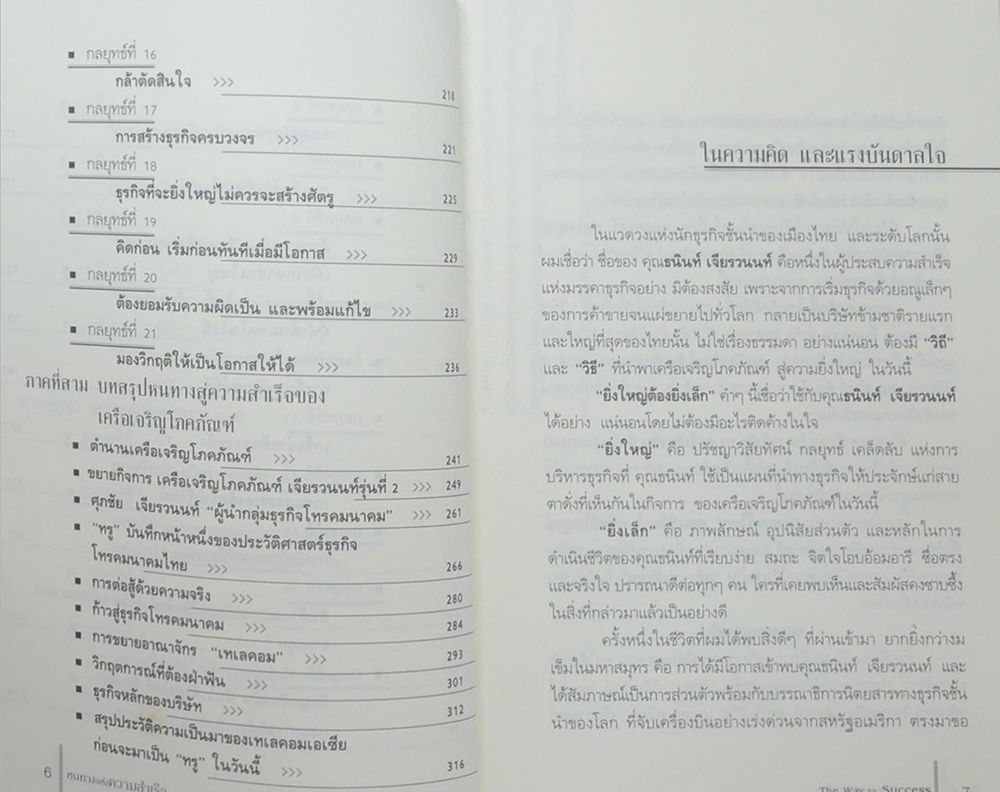 ▪ กลยุทธ์ที่ 16
กล้าตัดสินใจ >>> 218
▪ กลยุทธ์ที่ 17
การสร้างธุรกิจครบวงจร >>> 221
▪ กลยุทธ์ที่ 18
ธุรกิจที่จะยิ่งใหญ่ไม่ควรจะสร้างศัตรู >>> 225
▪ กลยุทธ์ที่ 19
คิดก่อน เริ่มก่อนทันทีเมื่อมีโอกาส >>> 229
▪ กลยุทธ์ที่ 20
ต้องยอมรับความผิดเป็น และพร้อมแก้ไข >>> 233
▪ กลยุทธ์ที่ 21
มองวิกฤติให้เป็นโอกาสให้ได้ >>> 236
ภาคที่สาม บทสรุปหนทางสู่ความสำเร็จของ
เครือเจริญโภคภัณฑ์
▪ ตำนานเครือเจริญโภคภัณฑ์ >>> 241
▪ ขยายกิจการ เครือเจริญโภคภัณฑ์ เจียรวนนท์รุ่นที่ 2 >>> 249
▪ ศุภชัย เจียรวนนท์ "ผู้นำกลุ่มธุรกิจโทรคมนาคม" >>> 261
▪ "ทรู" บันทึกหน้าหนึ่งของประวัติศาสตร์ธุรกิจ
โทรคมนาคมไทย >>> 266
▪ การต่อสู้ด้วยความจริง >>> 280
▪ ก้าวสู่ธุรกิจโทรคมนาคม >>> 284
▪ การขยายอาณาจักร "เทเลคอม" >>> 293
▪ วิกฤตการณ์ที่ต้องฝ่าฟัน >>> 301
▪ ธุรกิจหลักของบริษัท >>> 312
▪ สรุปประวัติความเป็นมาของเทเลคอมเอเซีย
ก่อนจะมาเป็น "ทรู" ในวันนี้ >>> 316
6
ในความคิด และแรงบันดาลใจ
ในแวดวงแห่งนักธุรกิจชั้นนำของเมืองไทย และระดับโลกนั้น
ผมเชื่อว่า ชื่อของ คุณธนินท์ เจียรวนนท์ คือหนึ่งในผู้ประสบความสำเร็จ
แห่งมรรคาธุรกิจอย่าง มิต้องสงสัย เพราะจากการเริ่มธุรกิจด้วยอณูเล็กๆ
ของการค้าขายจนแผ่ขยายไปทั่วโลก กลายเป็นบริษัทข้ามชาติรายแรก
และใหญ่ที่สุดของไทยนั้น ไม่ใช่เรื่องธรรมดา อย่างแน่นอน ต้องมี "วิถี"
และ "วิธี" ที่นำพาเครือเจริญโภคภัณฑ์ สู่ความยิ่งใหญ่ ในวันนี้
"ยิ่งใหญ่ต้องยิ่งเล็ก" คำๆ นี้เชื่อว่าใช้กับคุณธนินท์ เจียรวนนท์
ได้อย่าง แน่นอนโดยไม่ต้องมีอะไรติดค้างในใจ
"ยิ่งใหญ่" คือ ปรัชญาวิสัยทัศน์ กลยุทธ์ เคล็ดลับ แห่งการ
บริหารธุรกิจที่ คุณธนินท์ ใช้เป็นแผนที่นำทางธุรกิจให้ประจักษ์แก่สาย
ตาดั่งที่เห็นกันในกิจการ ของเครือเจริญโภคภัณฑ์ในวันนี้
"ยิ่งเล็ก" คือ ภาพลักษณ์ อุปนิสัยส่วนตัว และหลักในการ
ดำเนินชีวิตของคุณธนินท์ที่เรียบง่าย สมถะ จิตใจโอบอ้อมอารี ซื่อตรง
และจริงใจ ปรารถนาดีต่อทุกๆ คน ใครที่เคยพบเห็นและสัมผัสคงซาบซึ้ง
ในสิ่งที่กล่าวมาแล้วเป็นอย่างดี
ครั้งหนึ่งในชีวิตที่ผมได้พบสิ่งดีๆ ที่ผ่านเข้ามา ยากยิ่งกว่างม
เข็มในมหาสมุทร คือ การได้มีโอกาสเข้าพบคุณธนินท์ เจียรวนนท์ และ
ได้สัมภาษณ์เป็นการส่วนตัวพร้อมกับบรรณาธิการนิตยสารทางธุรกิจชั้น
นำของโลก ที่จับเครื่องบินอย่างเร่งด่วนจากสหรัฐอเมริกา ตรงมาขอ
The Way to Success 7